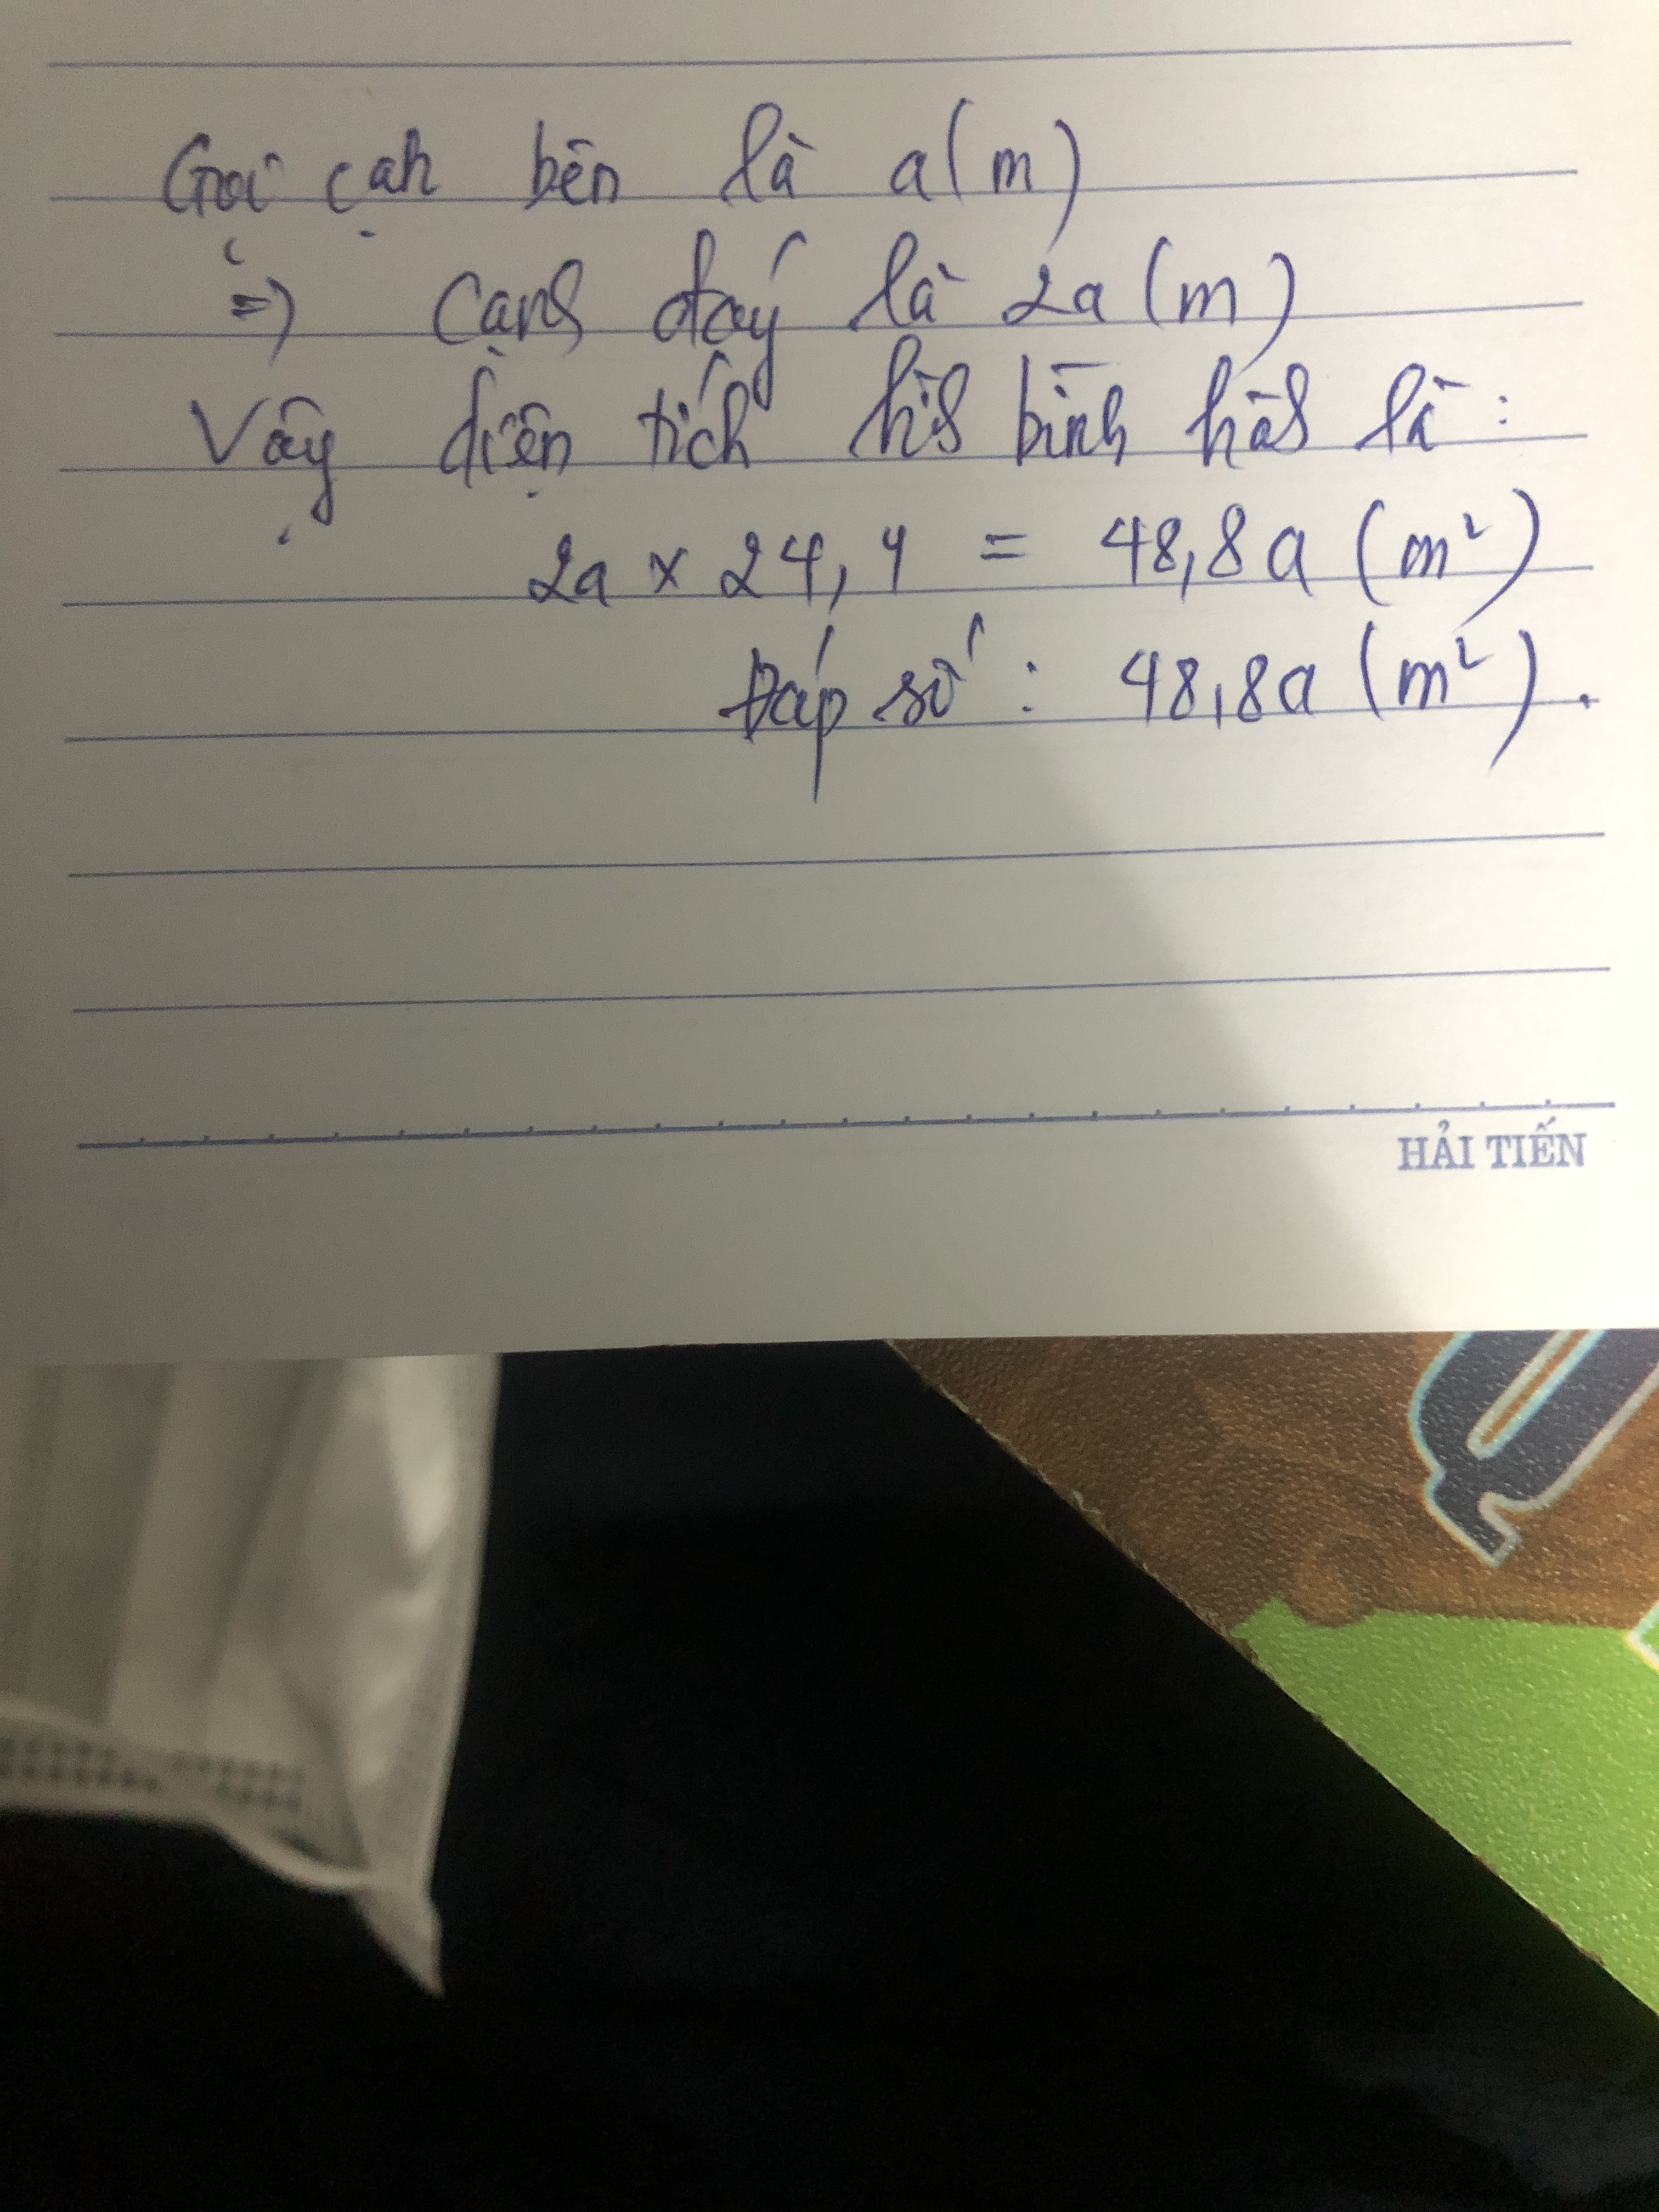 Gọi cạh bên là a(m)
=> cạnh đáy là 2a (m)
Vậy diện tích hìh bình hàh là :
2a x 24,4 = 48,8a (m²)
Đáp số : 48,8a (m²).
HẢI TIẾN